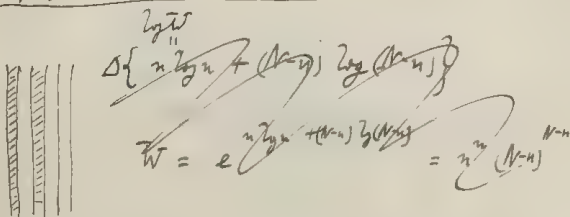 log W
"
Δ{ n log n + (N-n) log (N-n) }
W = e^{n log n + (N-n) lg (N-n)} = n^n (N-n)^{N-n}